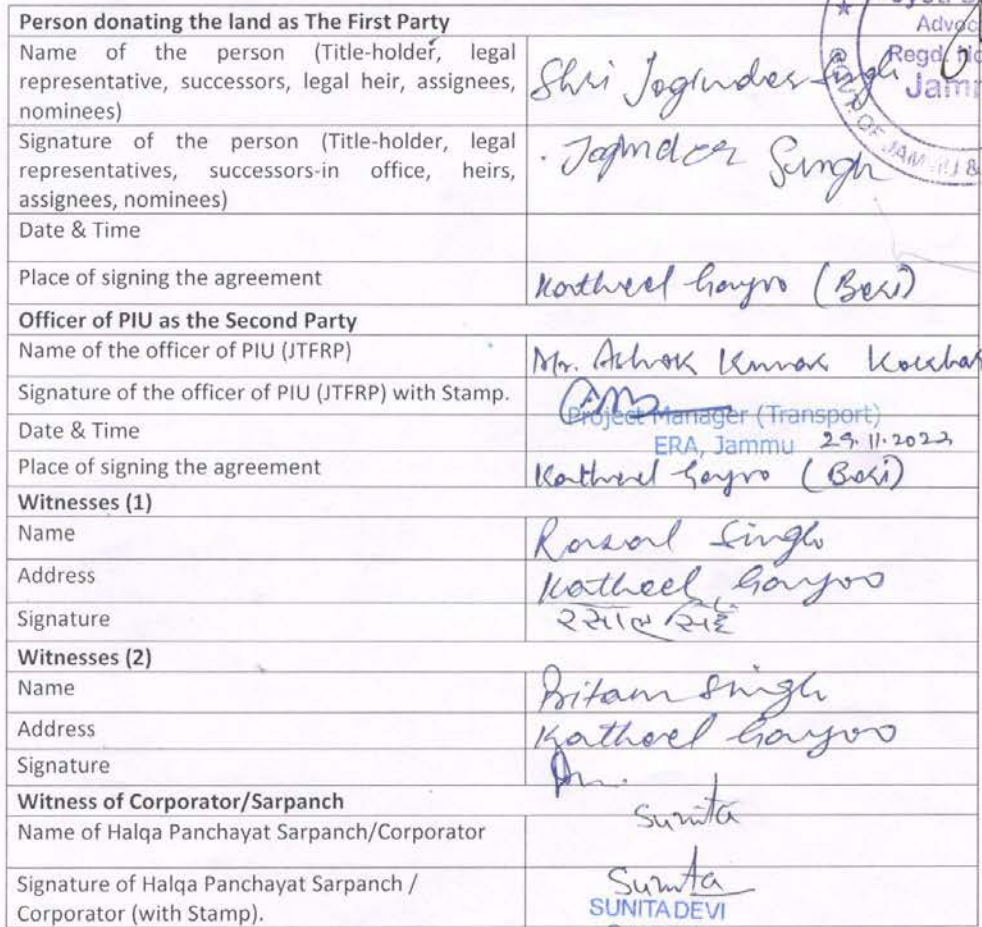 Person donating the land as The First Party
Name of the person (Title-holder, legal representative, successors, legal heir, assignees, nominees)
Shri Joginder Singh
Signature of the person (Title-holder, legal representatives, successors-in office, heirs, assignees, nominees)
Joginder Singh
Advoc
Regd. No
Jamm
GOVT. OF JAMMU &
Date & Time
Place of signing the agreement
(Beri)
Officer of PIU as the Second Party
Name of the officer of PIU (JTFRP)
Mr. Ashok Kumar
Signature of the officer of PIU (JTFRP) with Stamp.
Project Manager (Transport)
Date & Time
ERA, Jammu 29.11.2022
Place of signing the agreement
(Beri)
Witnesses (1)
Name
Singh
Address
Signature
रसाल सिंह
Witnesses (2)
Name
Singh
Address
Signature
Witness of Corporator/Sarpanch
Name of Halqa Panchayat Sarpanch/Corporator
Sunita
Signature of Halqa Panchayat Sarpanch / Corporator (with Stamp).
Sunita
SUNITA DEVI